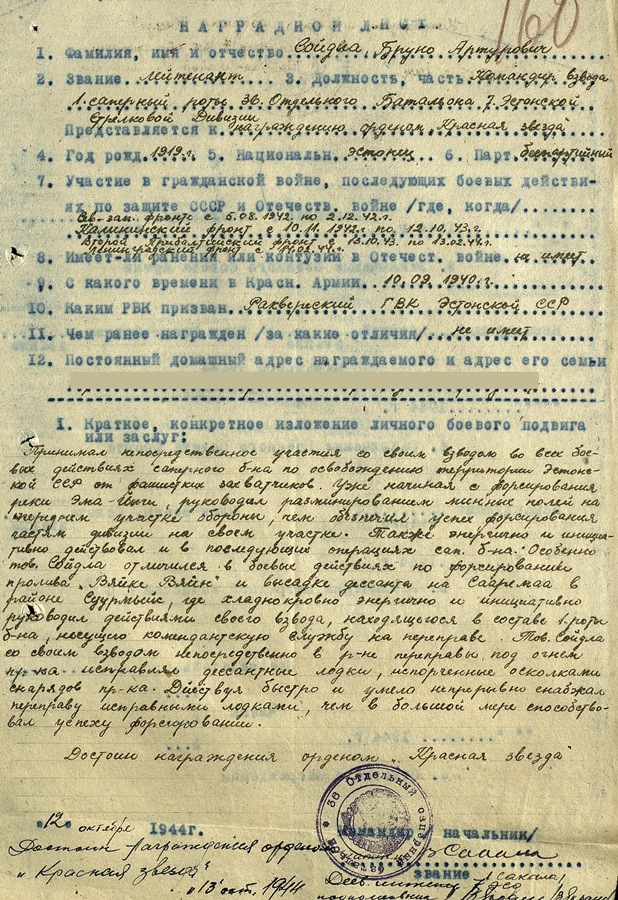 НАГРАДНОЙ ЛИСТ
160
1. Фамилия, имя и отчество Сойдла, Бруно Артурович
2. Звание лейтенант 3. Должность, часть Командир взвода
1. саперный роты 36. Отдельного Батальона 7. Эстонской
Стрелковой Дивизии
Представляется к награждению орденом „Красная звезда"
4. Год рожд. 1919 г. 5. Национальн. эстонец 6. Парт. беспартийный
7. Участие в гражданской войне, последующих боевых действи-
ях по защите СССР и Отечеств. войне /где, когда/
Сев-зап. фронте с 5.08.1942. по 2.12.42 г.
Калининский фронт с 10.11.1942 г. по 12.10.43 г.
Второй Прибалтийский фронт с 13.10.43. по 13.02.44 г.
Ленинградский фронт с
8. Имеет-ли ранении или контузии в Отечест. войне не имеет
9. С какого времени в Красн. Армии 10.09.1940 г.
10. Каким РВК призван Раквереский ГВК Эстонской ССР
11. Чем ранее награжден /за какие отличия/ не имеет
12. Постоянный домашный адрес награждаемого и адрес его семьи
I. Краткое, конкретное изложение личного боевого подвига
или заслуг:
Принимал непосредственное участия со своим взводою во всех бое-
вых действиях саперного б-на по освобождению территории Эстонс-
кой ССР от фашистких захватчиков. Уже начиная с форсирования
реки Эма-Йыги, руководил разминированием минных полей на
переднем участке обороны, чем обезпечил успех форсирования
частям дивизии на своем участке. Также энергично и инициа-
тивно действовал и в последующих операциях сап. б-на. Особенно
тов. Сойдла отличился в боевых действиях по форсированию
пролива „Вяйке Вяйн" и высадке дессанта на Сааремаа в
районе Суурмыйс, где хладнокровно энергично и инициативно
руководил действиями своего взвода, находящегося в составе 1. роты
б-на, несущую комендантскую службу на переправе. Тов. Сойдла
со своим взводом непосредственно в р-не переправы, под огнем
пр-ка исправлял дессантные лодки, испорченные осколками
снарядов пр-ка. Действуя быстро и умело непрерывно снабжал
переправу исправными лодками, чем в большой мере способство-
вал успеху форсировании.
Достоин награждения орденом „Красная звезда"
36 Отдельный саперный батальон
"12" октября 1944г. Командир /начальник/
Достоин награждения орденом
„Красная звезда"
звание /Сакала/
"13" окт. 1944
подполковник